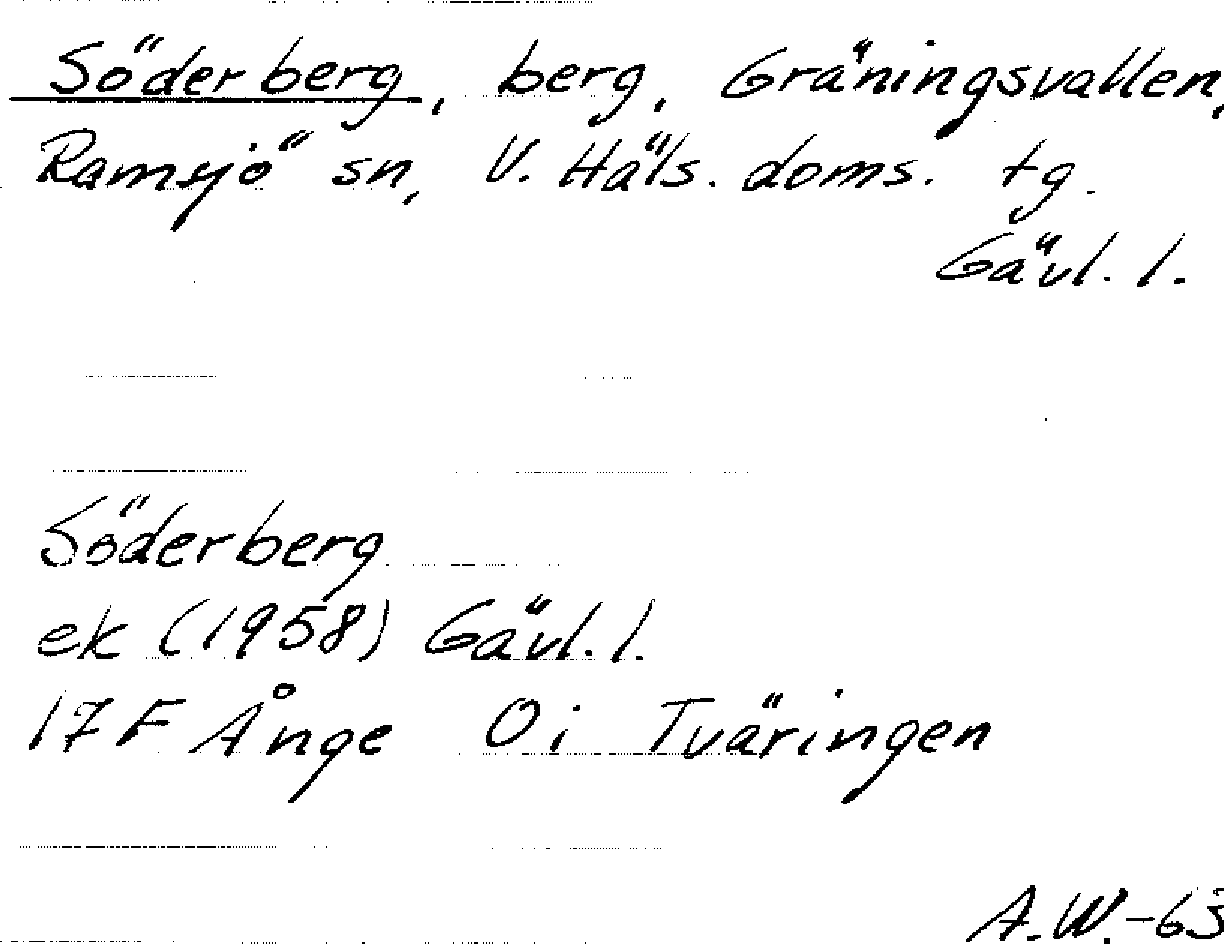 Söderberg, berg, Gräningsvallen,
Ramsjö sn, V. Häls. doms. tg.
Gävl. l.
Söderberg
ek (1958) Gävl. l.
17 F Ånge Oi Tväringen
A.W.-63